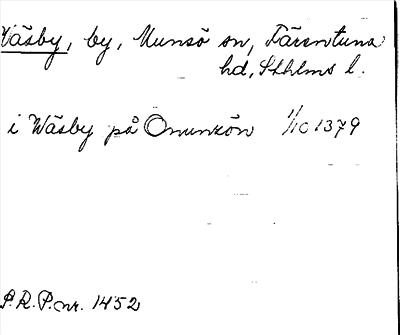 Väsby, by, Munsö sn, Färentuna
hd, Sthlms l.
i Wäsby på Omunsön 1/10 1379
S.R.P. nr. 1452